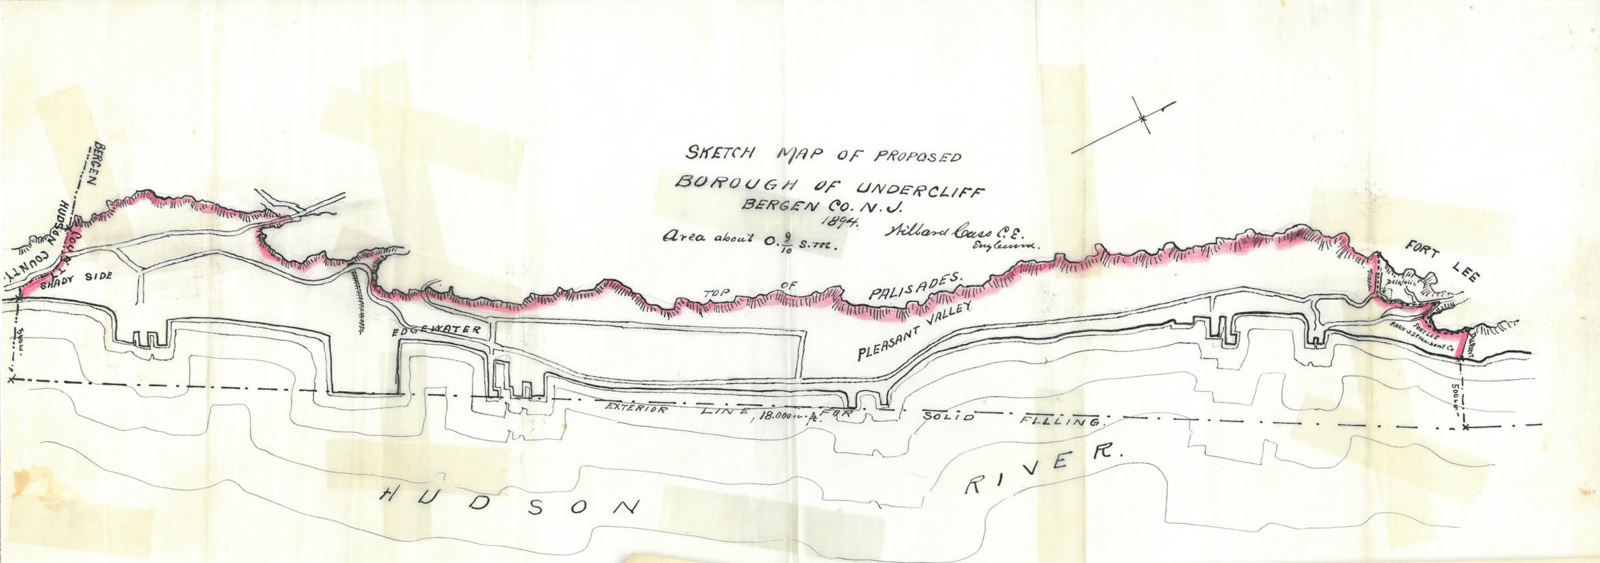 SKETCH MAP OF PROPOSED
BOROUGH OF UNDERCLIFF
BERGEN CO. N.J.
1894.
Area about 0.9/10 s.m.
Hillard Cass C.E.
BERGEN
COUNTY
HUDSON
COUNTY.
SHADY SIDE
EDGEWATER
TOP OF PALISADES.
PLEASANT VALLEY
FORT LEE
FORT LEE
PARK & STEAMBOAT CO
EXTERIOR LINE, FOR SOLID FILLING.
18.000
HUDSON RIVER.